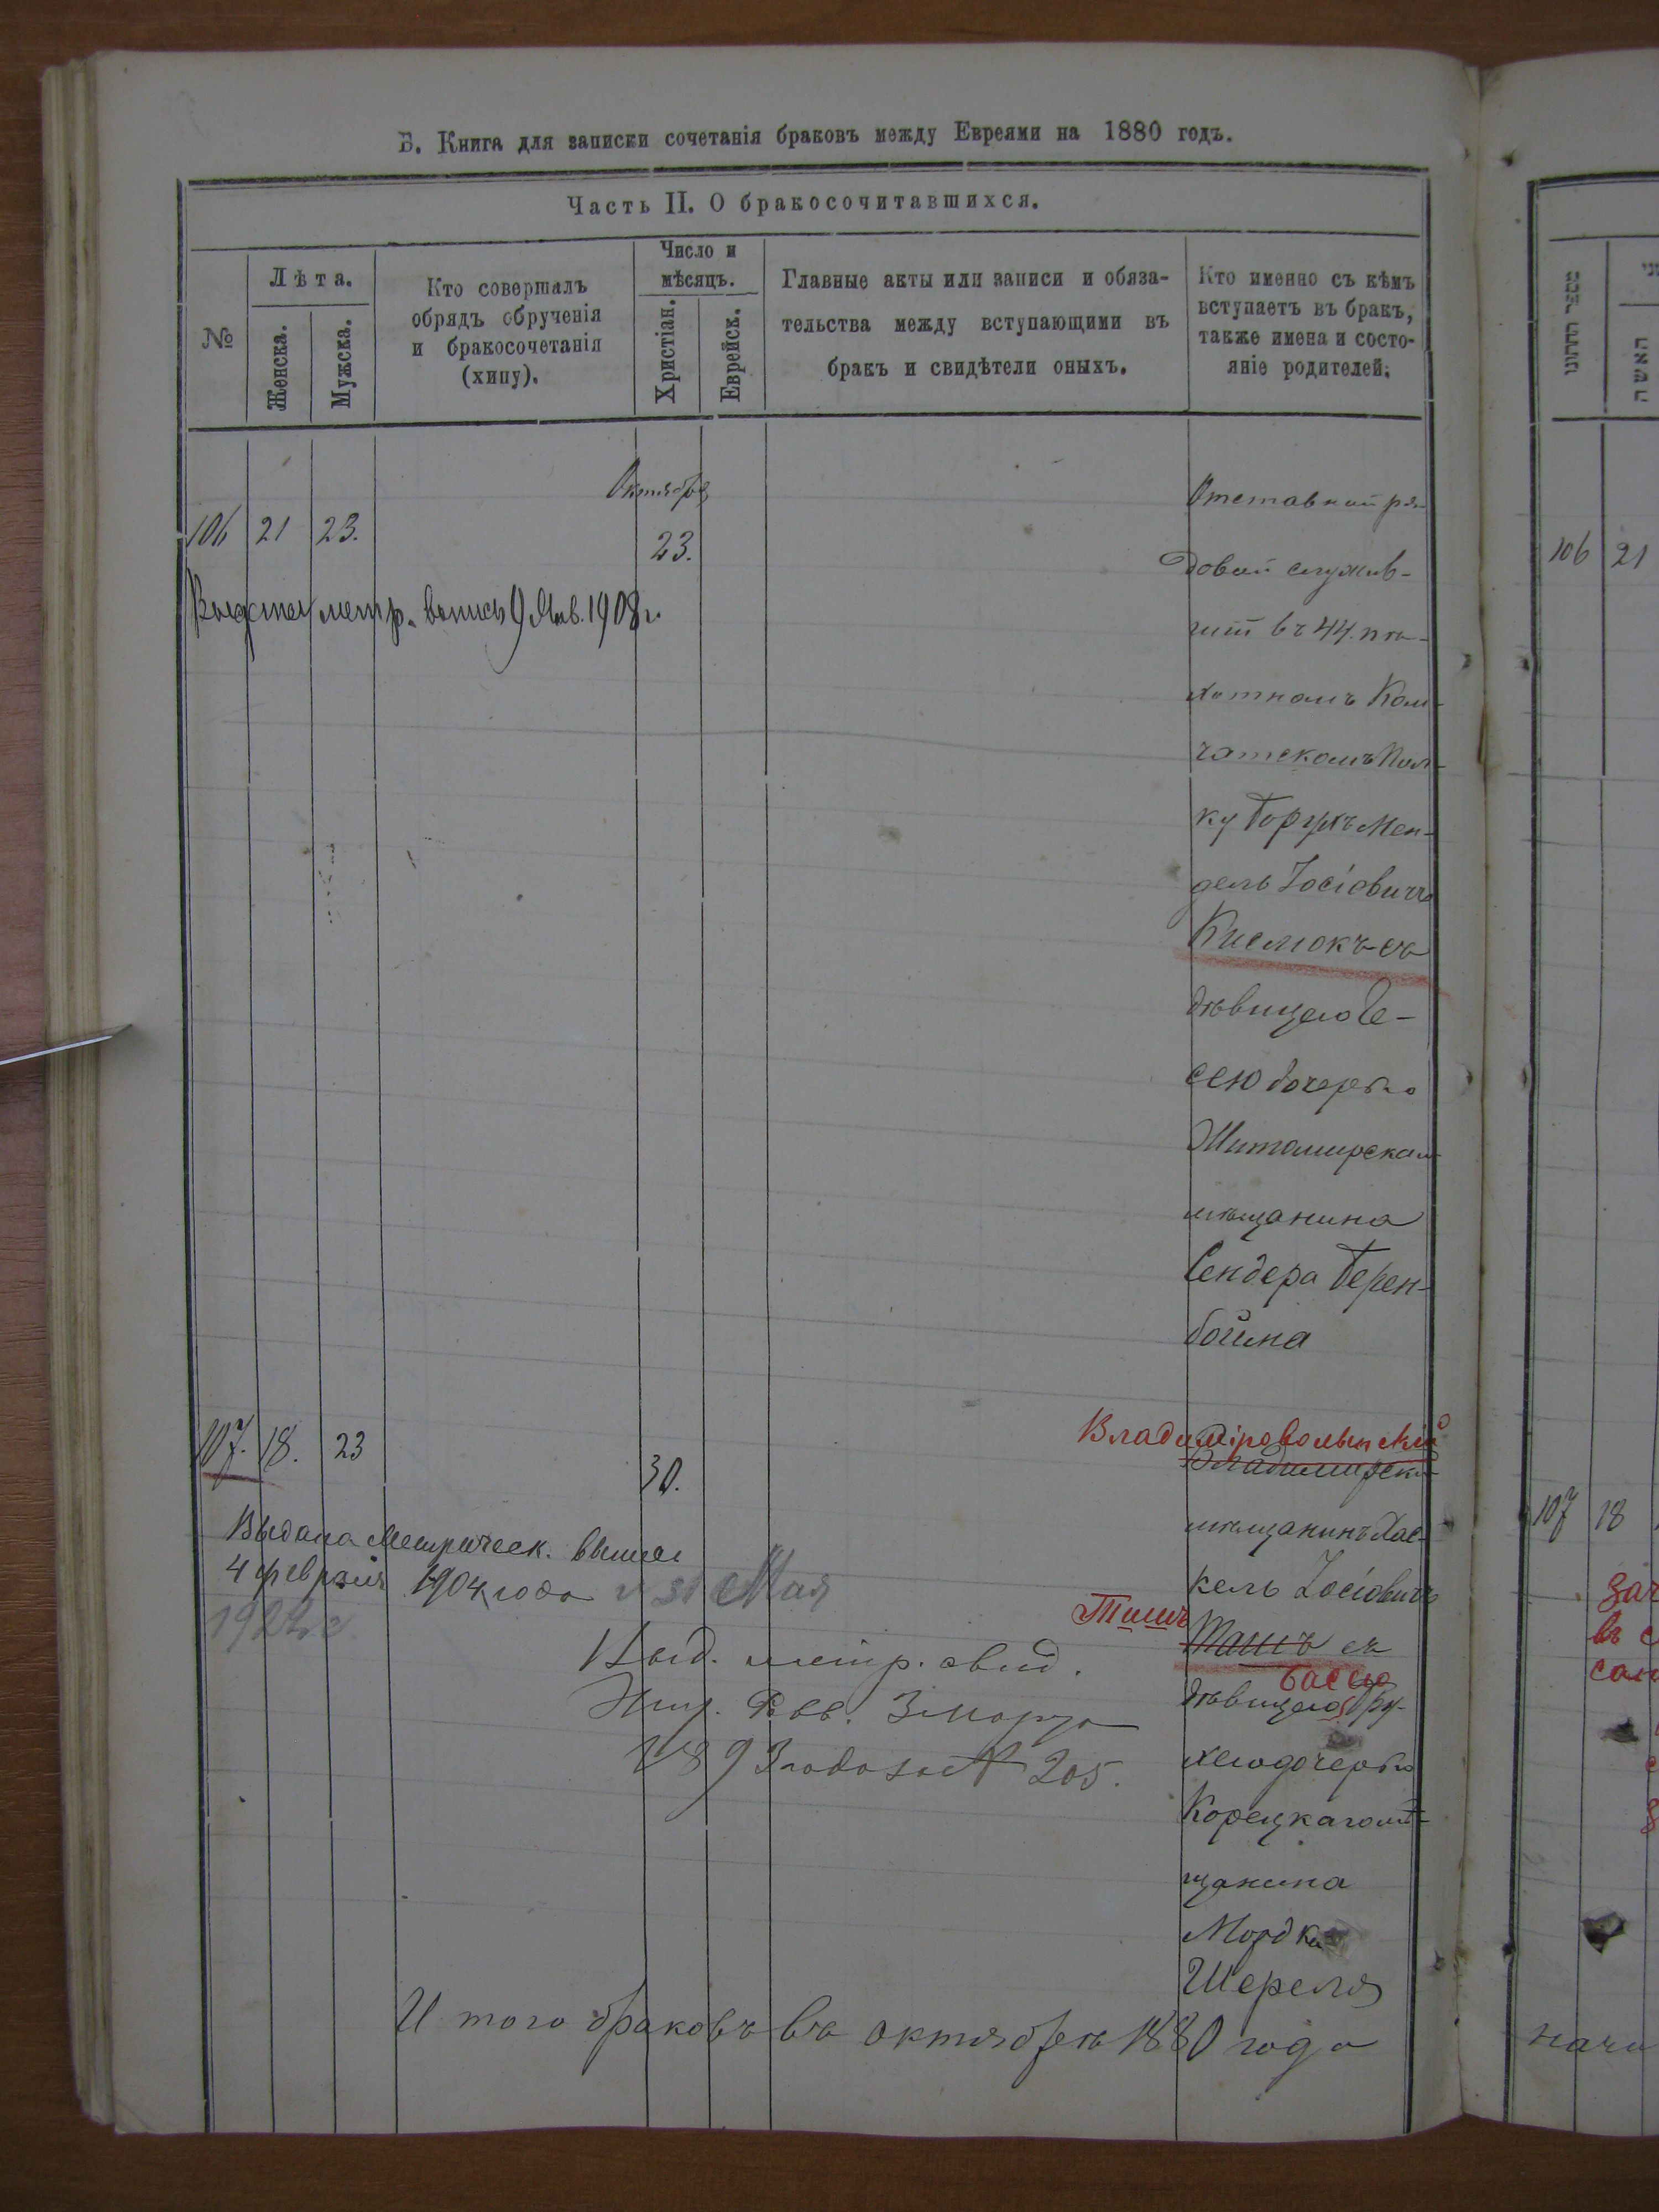 Б. Книга для записки сочетанія браковъ между Евреями на 1880 годъ.
Часть II. О бракосочитавшихся.
№
Лѣта.
Женска.
Мужска.
Кто совершалъ
обрядъ обрученія
и бракосочетанія
(хипу).
Число и
мѣсяцъ.
Христіан.
Еврейск.
Главные акты или записи и обяза-
тельства между вступающими въ
бракъ и свидѣтели оныхъ.
Кто именно съ кѣмъ
вступаетъ въ бракъ,
также имена и состо-
яніе родителей.
Октября
106 21 23. 23.
метр. вопись 9 Янв. 1908 г.
Отставной ря-
довой служив-
шій въ 44. пѣ-
хотномъ Кам-
чатскомъ Пол-
ку Борухъ Мен-
дель Іосіовичъ
Киснюкъ съ
дѣвицею Че-
сею дочерью
Житомирскаго
мѣщанина
Сендера Берен-
бойма
107. 18. 23 30.
Владиміроволынскій
Владимирскій
мѣщанинъ Хас-
кель Іосіовичъ
Тишъ
Ташъ съ
Басею
дѣвицею Бру-
хею дочерью
Корецкаго мѣ-
щанина
Мордка
Шереля
Выдана Метрическ. выпись
4 февраля 1904 года и 31 Мая
1922 г.
Выд. метр. свид.
№ 205.
Итого браковъ въ октябрѣ 1880 года
מספר החתונו
האשה
106 21
107 18